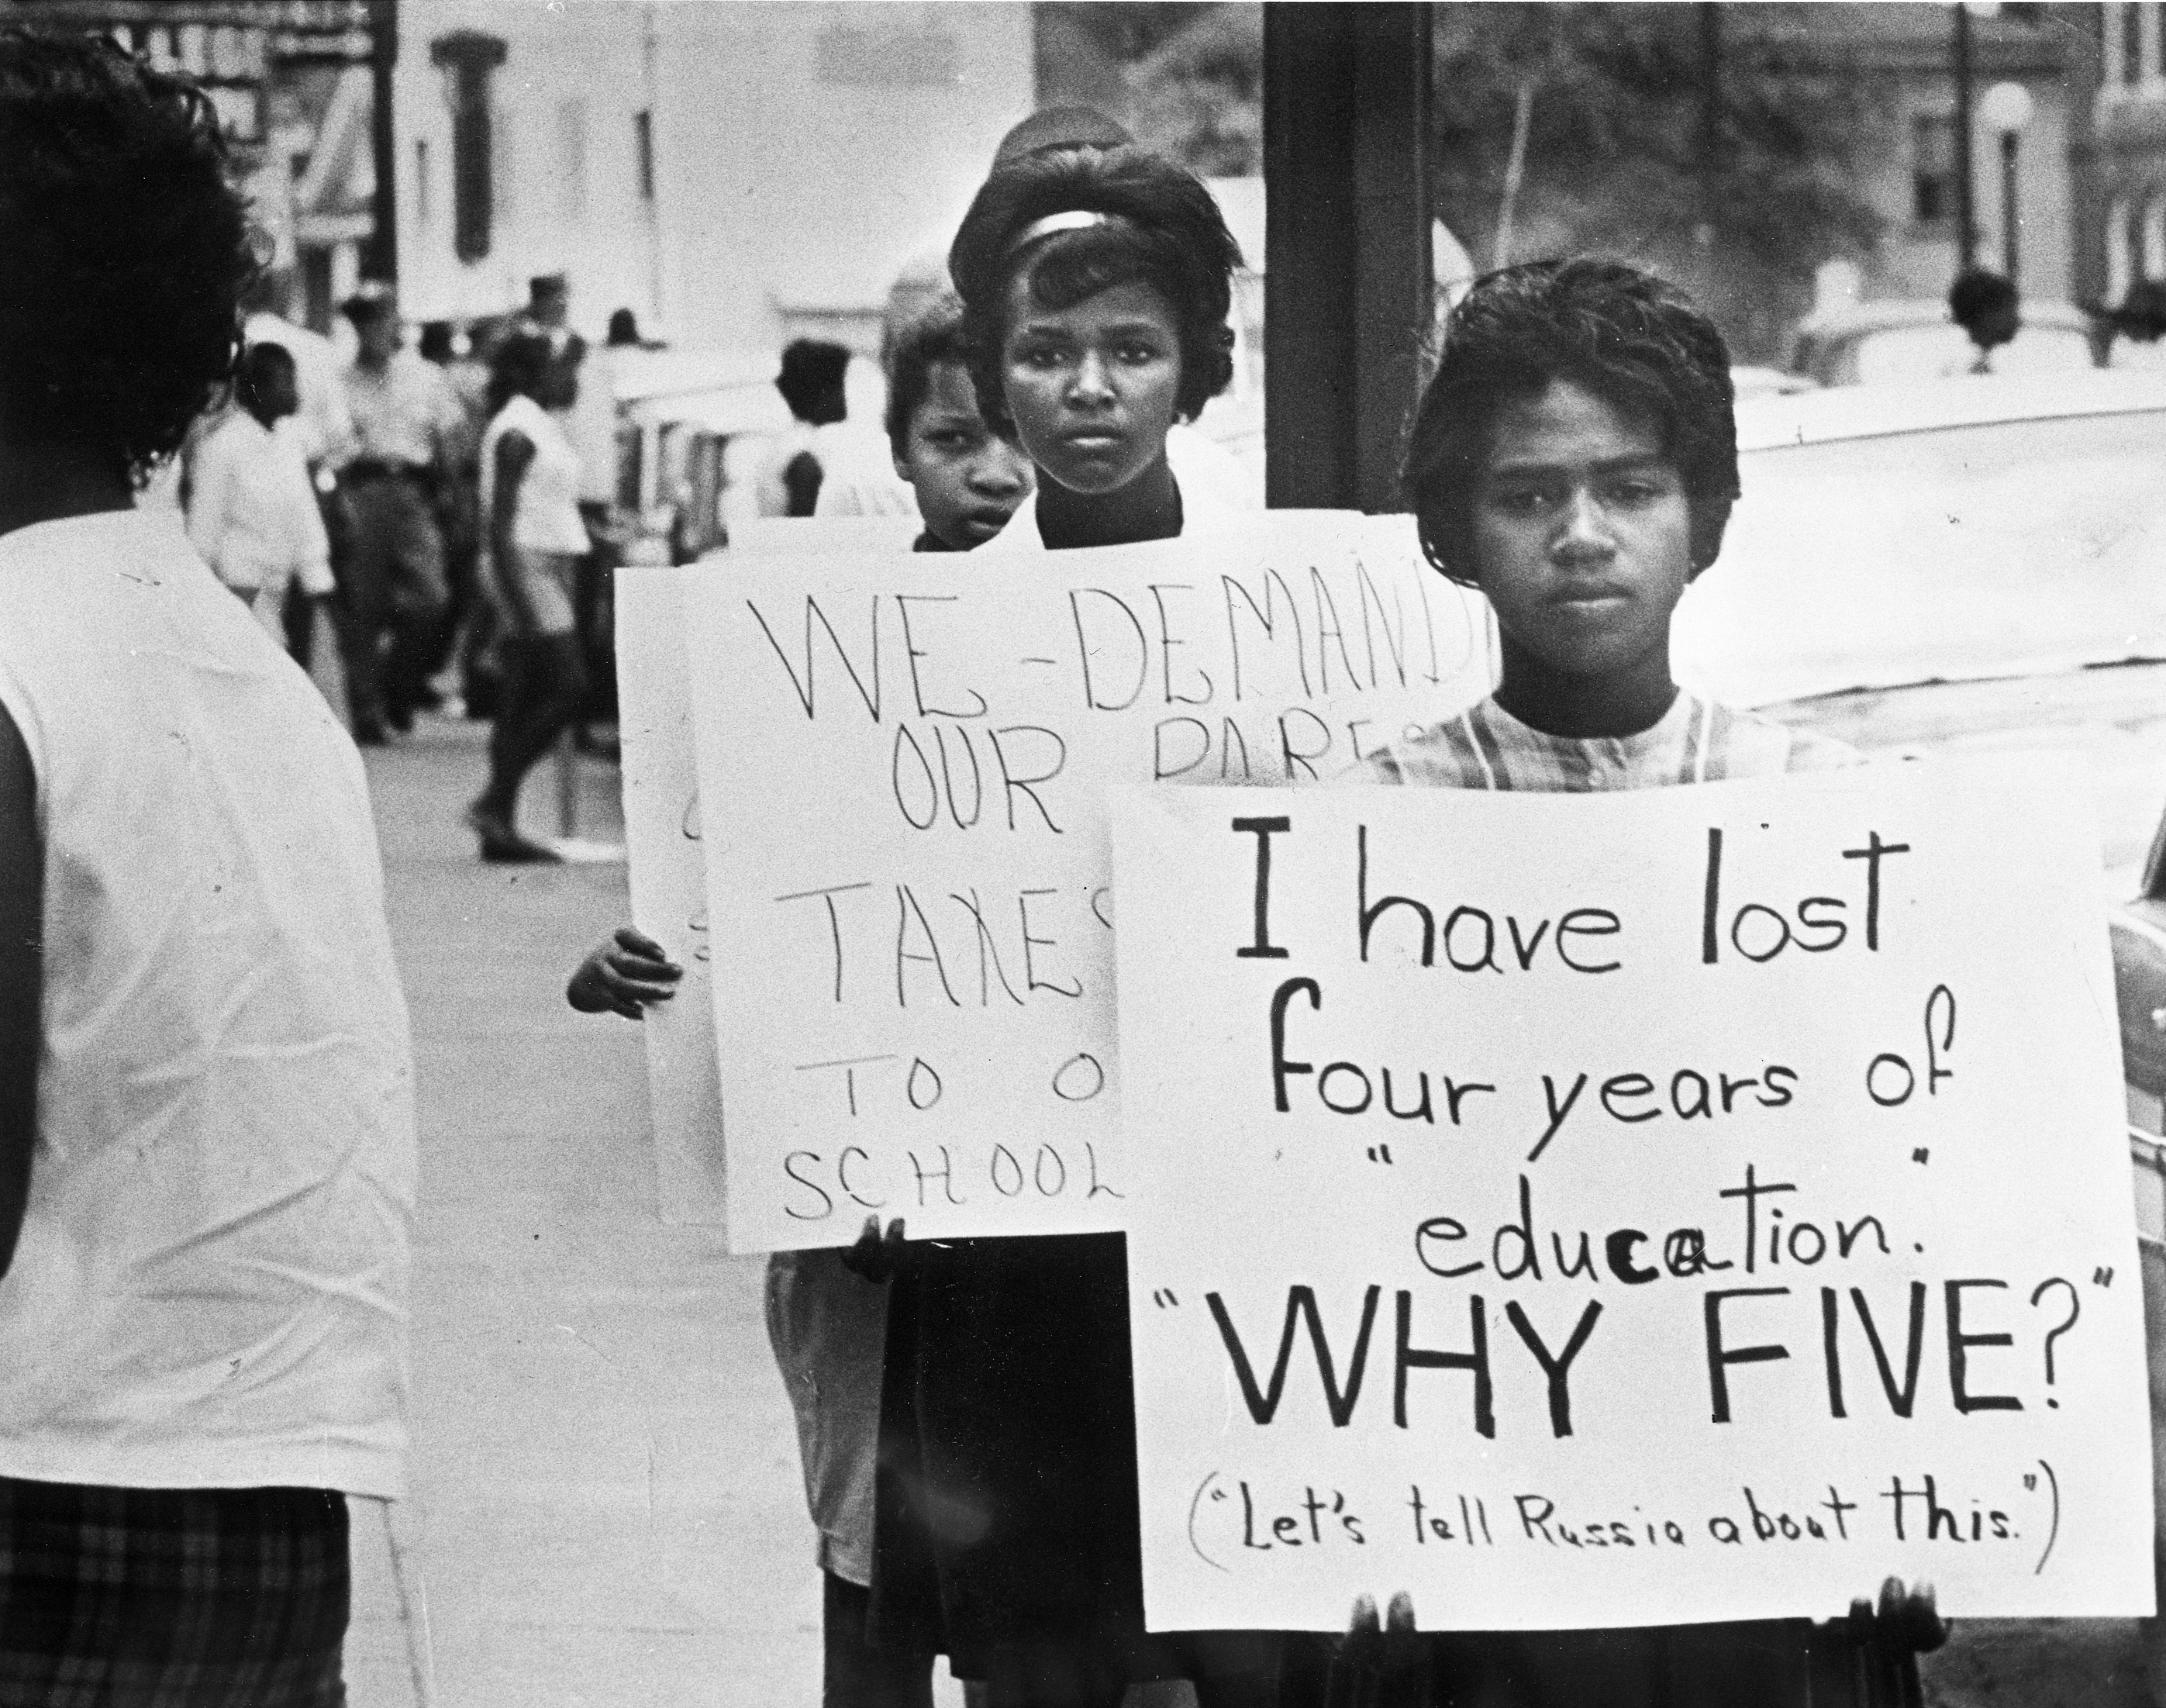 WE - DEMAND
OUR
TAXES
TO
SCHOOL
I have lost
four years of
"education."
"WHY FIVE?"
("Let's tell Russia about this.")